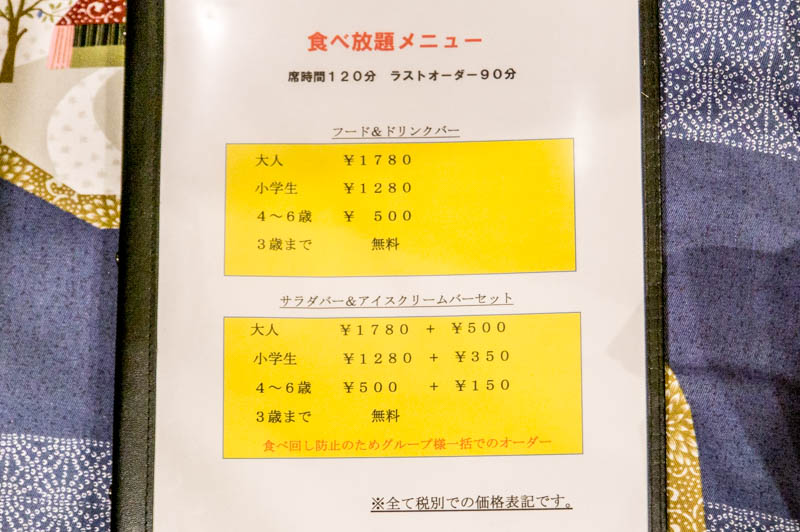 食べ放題メニュー
席時間120分 ラストオーダー90分
フード&ドリンクバー
大人 ¥1780
小学生 ¥1280
4~6歳 ¥ 500
3歳まで 無料
サラダバー&アイスクリームバーセット
大人 ¥1780 + ¥500
小学生 ¥1280 + ¥350
4~6歳 ¥500 + ¥150
3歳まで 無料
食べ回し防止のためグループ様一括でのオーダー
※全て税別での価格表記です。